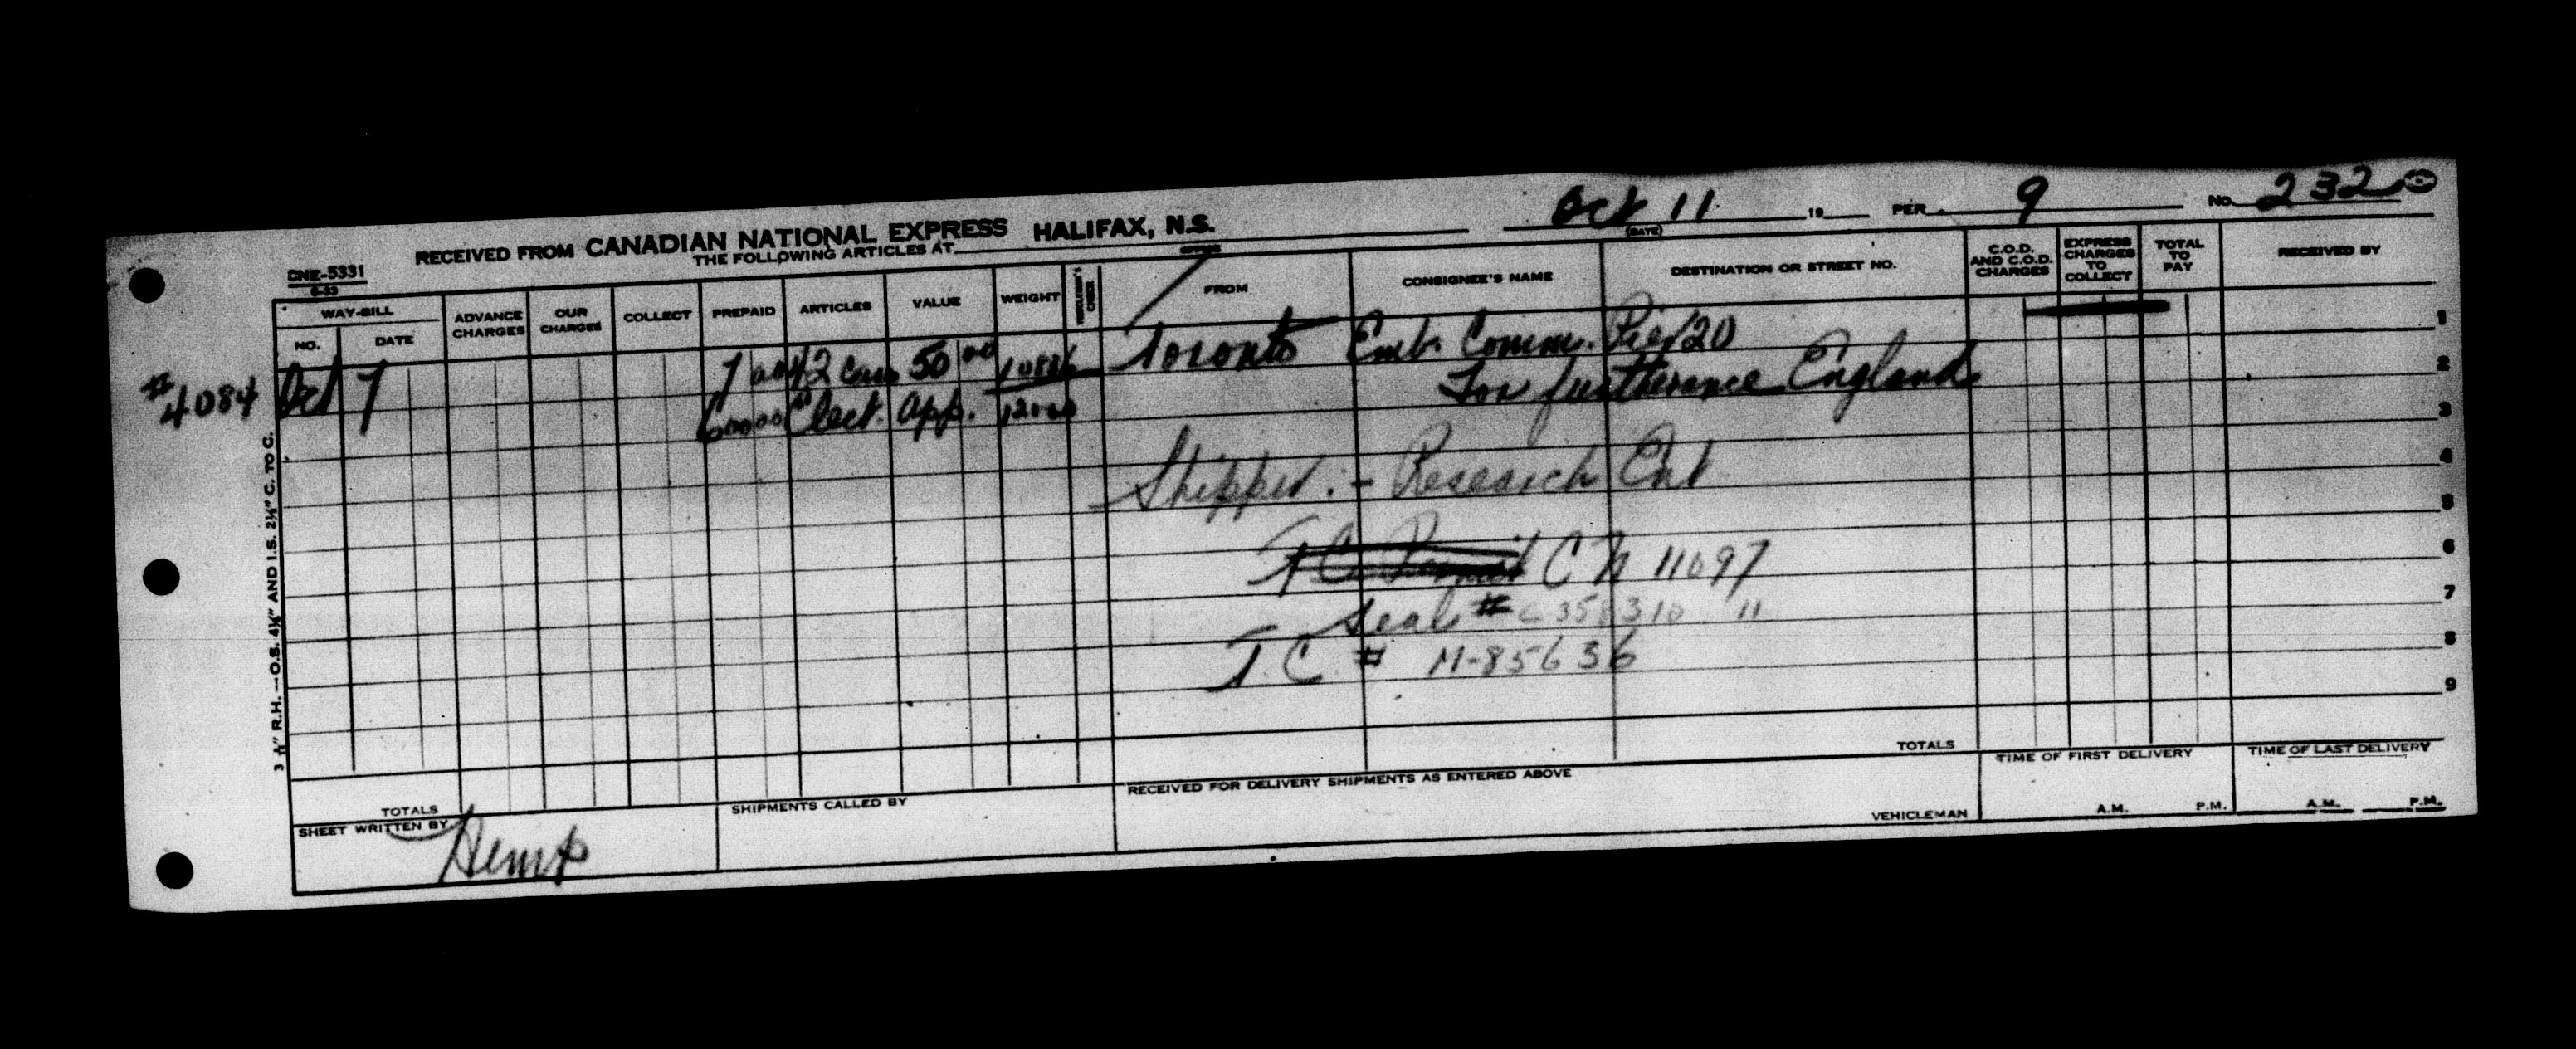 Oct 11 19 PER 9 No. 232
RECEIVED FROM CANADIAN NATIONAL EXPRESS HALIFAX, N.S.
(DATE)
THE FOLLOWING ARTICLES AT
OFFICE
CNE-5331
6-33
WAY-BILL
NO. DATE ADVANCE CHARGES OUR CHARGES COLLECT PREPAID ARTICLES VALUE WEIGHT VEHICLEMAN'S CHECK FROM CONSIGNEE'S NAME DESTINATION OR STREET NO. C.O.D. AND C.O.D. CHARGES EXPRESS CHARGES TO COLLECT TOTAL TO PAY RECEIVED BY
#4084 Oct 7 42 Cases 50 00 10886 Toronto Emb. Comm. Pier 20
Elect. App. 12000 For furtherance England
Shipper :- Research Ent
T C Permit C N 11097
Seal # C 358310 11
T. C. # M-85636
1
2
3
4
5
6
7
8
9
3 ⅞" R.H.—O.S. 4¼" AND I.S. 2½" C. TO C.
TOTALS
TOTALS
SHEET WRITTEN BY Hemp
SHIPMENTS CALLED BY
RECEIVED FOR DELIVERY SHIPMENTS AS ENTERED ABOVE
VEHICLEMAN
TIME OF FIRST DELIVERY
A.M. P.M.
TIME OF LAST DELIVERY
A.M. P.M.